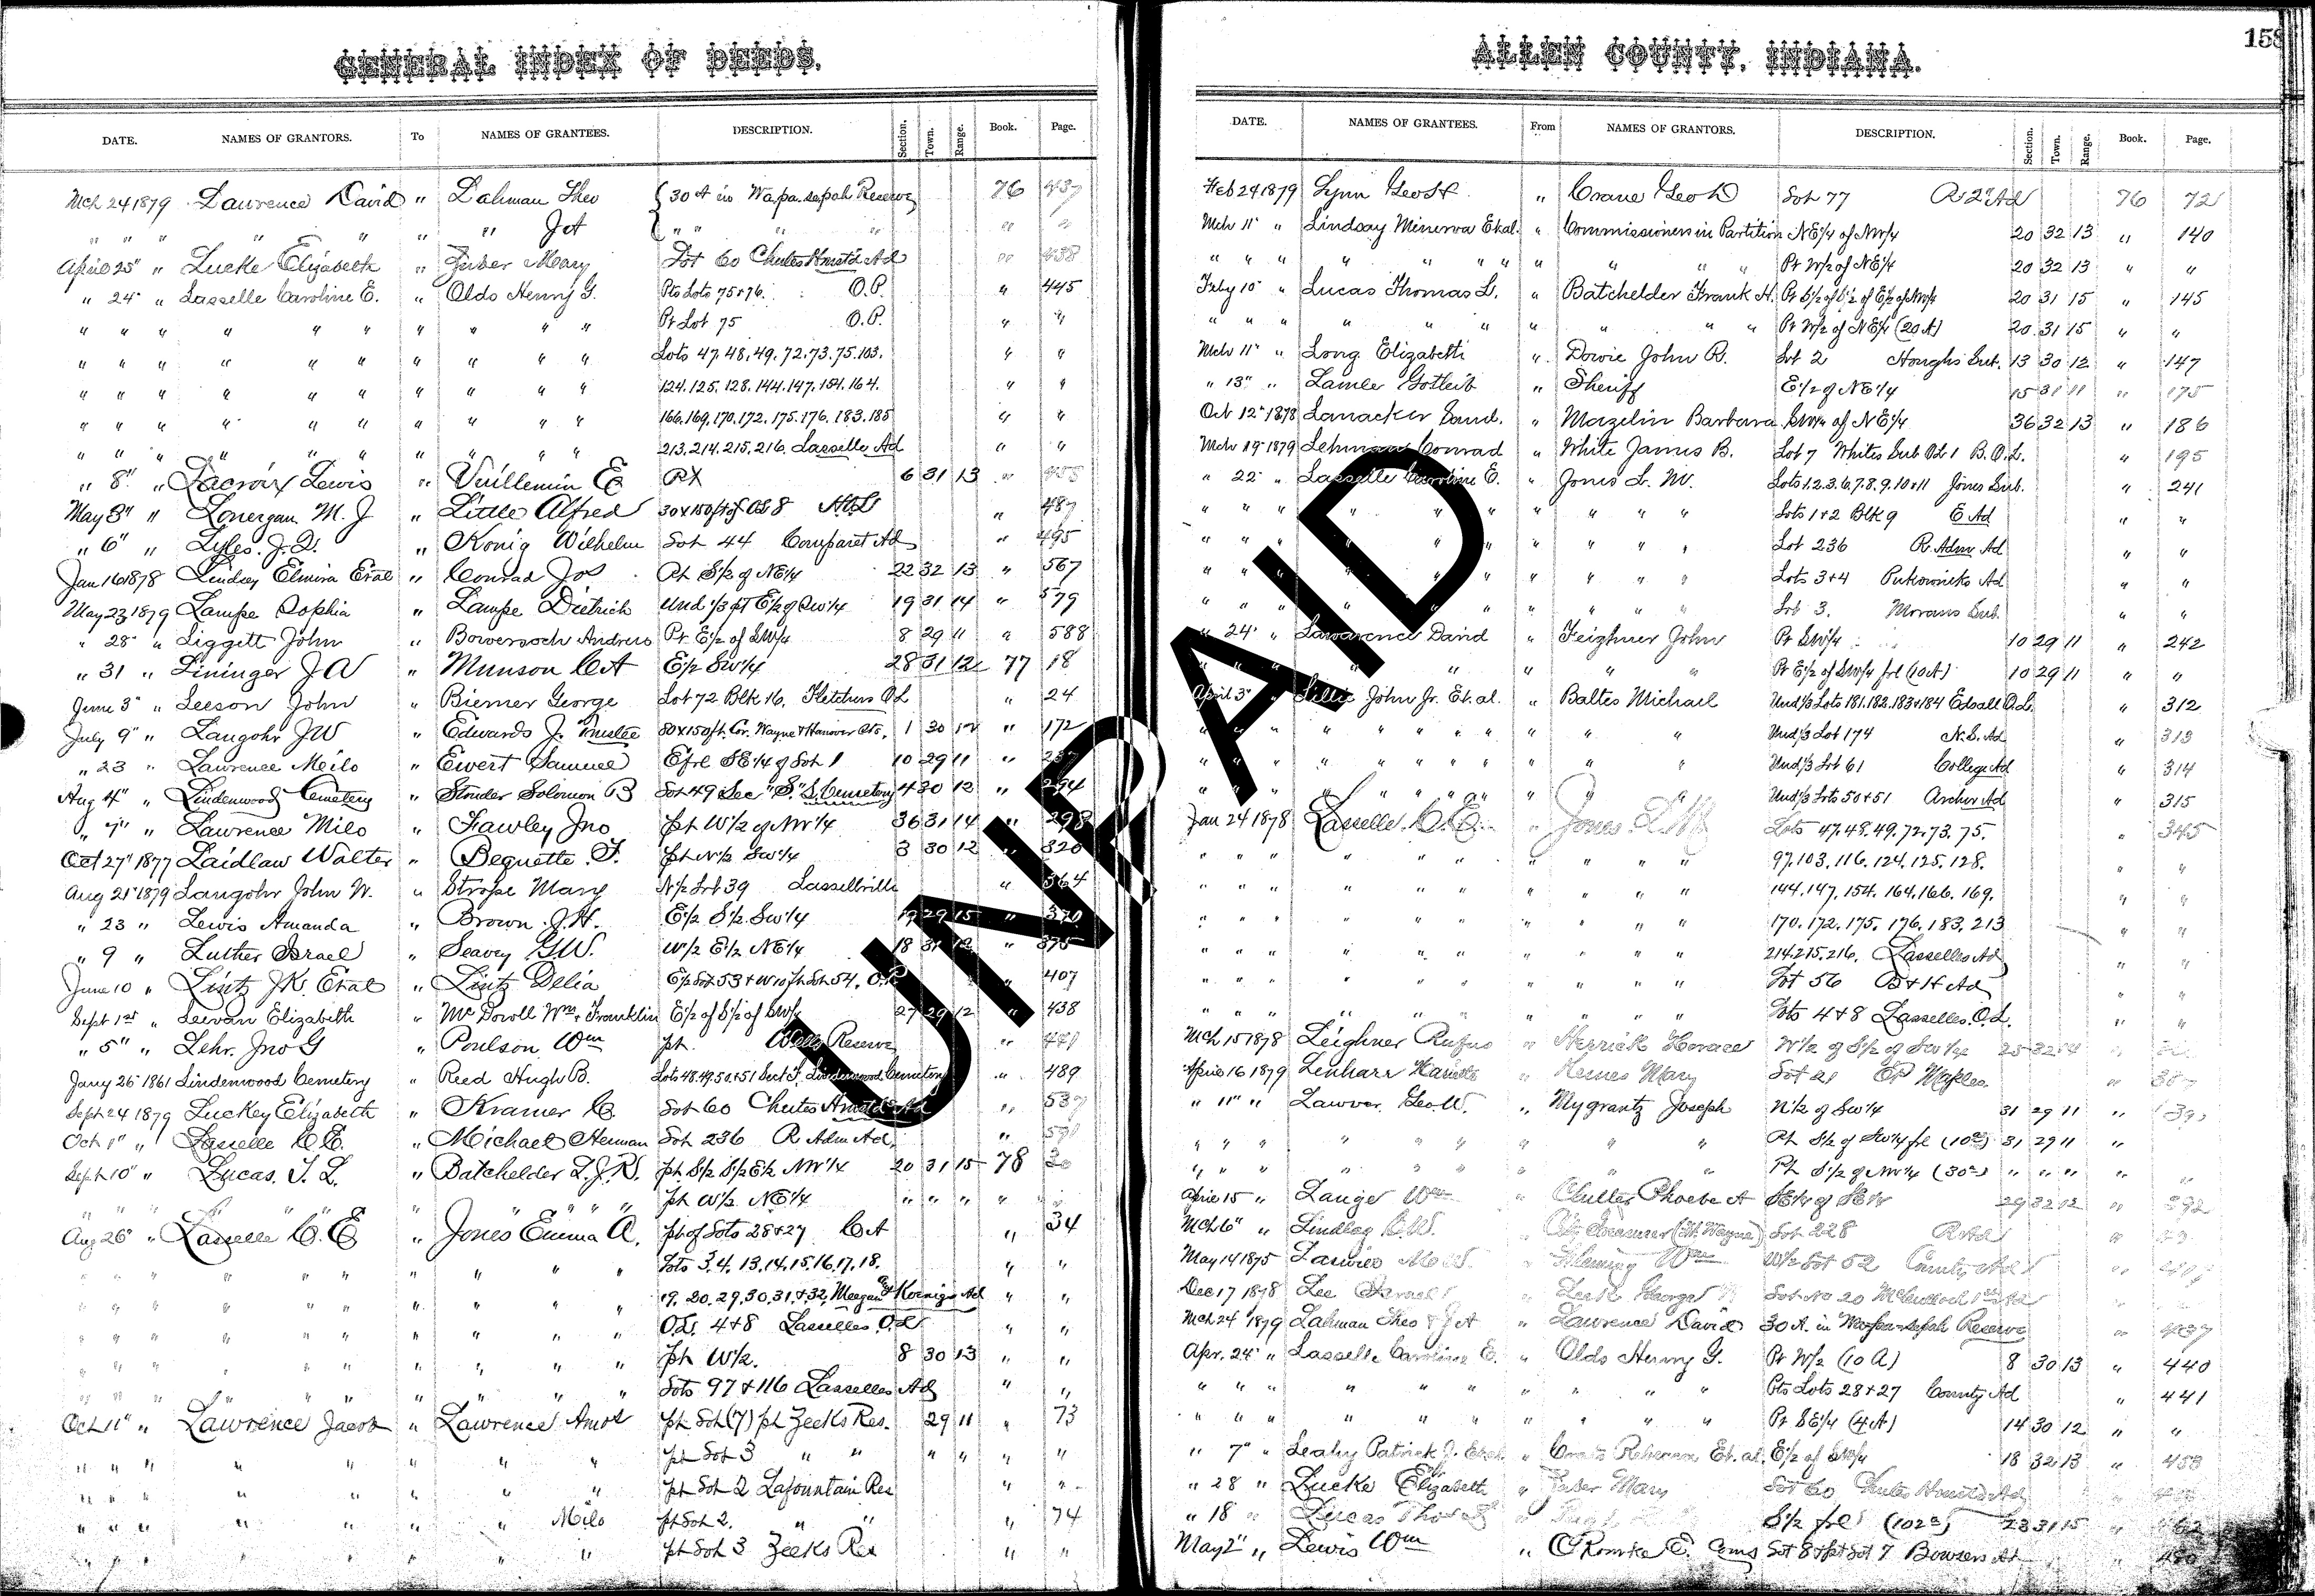 GENERAL INDEX OF DEEDS.
DATE. NAMES OF GRANTORS. To NAMES OF GRANTEES. DESCRIPTION. Section. Town. Range. Book. Page.
Mch 24 1879 Lawrence David " Lahman Theo { 30 A in Wa.pa.sepah Reserve 76 437
" " " " " " " Jot { " " " " " "
April 25" " Lucke Elizabeth " Fisber Mary Lot 60 Chutes Hmstd Ad " 438
" 24" " Lasselle Caroline E. " Olds Henry G. Pts Lots 75+76. O.P. " 445
" " " " " " " " " " Pt Lot 75 O.P. " "
" " " " " " " " " " Lots 47.48.49.72.73.75.103. " "
" " " " " " " " " " 124.125.128.144.147.154.164. " "
" " " " " " " " " " 166.169.170.172.175.176.183.185 " "
" " " " " " " " " " 213.214.215.216. Lasselles Ad " "
" 8" " Lacroix Lewis " Vuillemin E RX 6 31 13 "
May 3" " Lonergan M. J " Little Alfred 30x150 ft of OL 8 " 487
" 6" " Lyles. J. D. " Konig Wilhelm Lot 44 Comparet Ad " 495
Jan 16 1878 Lindsey Elmira Etal " Conrad Jos Pt S1/2 of NE1/4 22 32 13 " 567
May 23 1879 Lampe Sophia " Lampe Dietrich Und 1/3 pt E1/2 of SW1/4 19 31 14 " 579
" 28" " Liggett John " Bowersoch Andrew Pt. E1/2 of SW1/4 8 29 11 " 588
" 31 " Lininger J A " Munson C A E1/2 SW1/4 28 31 12 77 18
June 3" " Leeson John " Biemer George Lot 72 Blk 16. Fletchers O L " 24
July 9" " Langohr J W " Edwards J. Trustee 80x150 ft. Cor. Wayne & Hanover Sts. 1 30 12 " 172
" 23 " Lawrence Milo " Ewert Samuel E frl SE1/4 of Lot 1 10 29 11 "
Aug 4" " Lindenwood Cemetery " Studer Solomon B Lot 49 Sec "S." L Cemetery 4 30 12 " 294
" 7" " Lawrence Milo " Fawley Jno pt W1/2 of NW1/4 36 31 14 " 298
Oct 27" 1877 Laidlaw Walter " Bequette F. pt N1/2 SW1/4 3 30 12 " 320
Aug 21" 1879 Langohr John W. " Strope Mary N1/2 Lot 39 Lassellville " 364
" 23 " Lewis Amanda " Brown J. H. E1/2 S1/2 SW1/4 19 29 15 " 370
" 9 " Luther Israel " Seavey G W. W1/2 E1/2 NE1/4 18 31 12 " 375
June 10 " Lintz J K. Etal " Lintz Delia E1/2 Lot 53 + W 10 ft Lot 54. O.P. " 407
Sept 1st " Leevan Elizabeth " Mc Dowell Wm + Franklin E1/2 of S1/2 of SW1/4 27 29 12 " 438
" 5" " Lehr. Jno G " Poulson Wm pt. Wells Reserve "
Jany 26" 1861 Lindenwood Cemetery " Reed Hugh B. Lots 48.49.50.+51 Sect F. Lindenwood Cemetery " 489
Sept 24 1879 Luckey Elizabeth " Kramer C. Lot 60 Chutes Hmstd Ad " 537
Oct 1" " Lasselle C E. " Michael Herman Lot 236 R Adm Ad. "
Sept 10" " Lucas. T. L. " Batchelder L. J. R. pt. S1/2 S1/2 E1/2 NW1/4 20 31 15 78
" " " " " " pt W1/2 NE1/4 " " " " "
Aug 26" " Lasselle C. E " Jones Emma A. pt of Lots 28+27 C A " 34
" " " " " " " " " Lots 3.4.13.14.15.16.17.18. " "
" " " " " " " " " 19.20.29.30.31.+32. Meegan & Koenigs Ad " "
" " " " " " " " " O.L. 4+8 Lasselles O.L " "
" " " " " " " " " pt W1/2. 8 30 13 " "
" " " " " " " " " Lots 97+116 Lasselles Ad " "
Oct 11" " Lawrence Jacob " Lawrence Amos pt Lot (7) pt Zeeks Res. 29 11 " 73
" " " " " " " " pt Lot 3 " " " " " "
" " " " " " " " pt Lot 2 Lafountain Res " "
" " " " " " " Milo pt Lot 2. " " " 74
" " " " " " " " pt Lot 3 Zeeks Res " "
ALLEN COUNTY, INDIANA.
158
DATE. NAMES OF GRANTEES. From NAMES OF GRANTORS. DESCRIPTION. Section. Town. Range. Book. Page.
Feb 24 1879 Lynn Geo H " Crane Geo D Lot 77 R 2" Ad 76 72
Mch 11" " Lindsay Minerva Etal. " Commissioners in Partition NE1/4 of NW1/4 20 32 13 " 140
" " " " " " " " " " " Pt W1/2 of NE1/4 20 32 13 " "
Feby 10" " Lucas Thomas L. " Batchelder Frank H. Pt S1/2 of S1/2 of E1/2 of NW1/4 20 31 15 " 145
" " " " " " " " " " Pt W1/2 of NE1/4 (20 A) 20 31 15 " "
Mch 11" " Long Elizabeth " Dowie John R. Lot 2 Houghs Sub. 13 30 12 " 147
" 13" " Lamle Gotleib " Sheriff E1/2 of NE1/4 15 31 11 " 175
Oct 12" 1878 Lanacker Saml. " Mazelin Barbara SW1/4 of NE1/4 36 32 13 " 186
Mch 19" 1879 Lehman Conrad " White James B. Lot 7 Whites Sub OL 1 B.O.L. " 195
" 22" " Lasselle Caroline E. " Jones L. M. Lots 1.2.3.6.7.8.9.10+11 Jones Sub. " 241
" " " " " " " " " " Lots 1+2 Blk 9 E Ad " "
" " " " " " " " " " Lot 236 R. Adm. Ad " "
" " " " " " " " " " Lots 3+4 Ad " "
" " " " " " " " " " Lot 3. Morans Sub. " "
" 24" " Lawarence David " Feighner John Pt SW1/4 10 29 11 " 242
" " " " " " " " Pt E1/2 of SW1/4 frl (10 A) 10 29 11 " "
April 3" " Lillie John Jr. Et.al. " Baltes Michael Und 1/3 Lots 181.182.183+184 Edsall O.L. " 312
" " " " " " " " " " Und 1/3 Lot 174 N.S. Ad " 313
" " " " " " " " " " Und 1/3 Lot 61 College Ad " 314
" " " " " " " " " " Und 1/3 Lots 50+51 Archer Ad " 315
Jan 24 1878 Lasselle C. E. " Jones L M Lots 47.48.49.72.73.75. " 345
" " " " " " " " " " 97.103.116.124.125.128. " "
" " " " " " " " " " 144.147.154.164.166.169. " "
" " " " " " " " " " 170.172.175.176.183.213 " "
" " " " " " " " " " 214.215.216. Lasselles Ad " "
" " " " " " " " " " Lot 56 B+H Ad " "
" " " " " " " " " " Lots 4+8 Lasselles. O.L. " "
Mch 15 1878 Leighner Rufus " Herrick Horace W1/2 of S1/2 of SW1/4 25 32 14 "
April 16 1879 Lenharr Hariette " Mary "
" 11" " Lawver. Geo W. " Mygrantz Joseph N1/2 of SW1/4 31 29 11 "
" " " " " " " " " Pt S1/2 of SW1/4 frl (10 as) 31 29 11 "
" " " " " " " " Pt S1/2 of NW1/4 (30 as) " " " " "
April 15 " Langer Wm " Phoebe A SE1/4 of SE1/4 29 32 12 " 392
Mch 6" " Lindlag C. W. " City Treasurer (Ft. Wayne) Lot 228 "
May 14 1875 " Fleming Wm W1/2 Lot 52 County Ad "
Dec 17 1878 Lee " George Lot No 20 McCulloch 1st Ad "
Mch 24" 1879 Lahman Theo & J A " Lawrence David 30 A. in Wa-pa-sepah Reserve " 437
Apr. 24" " Lasselle Caroline E. " Olds Henry G. Pt W1/2 (10 A) 8 30 13 " 440
" " " " " " " " " " Pts Lots 28+27 County Ad " 441
" " " " " " " " " " Pt SE1/4 (4 A) 14 30 12 " "
" 7" " Leahy Patrick J. Etal. " Rebecca Et.al. E1/2 of SW1/4 18 32 13 " 453
" 28 " Lucke Elizabeth " Mary Lot 60 Chutes Hmstd Ad "
" 18 " Lucas Thos " S1/2 frl (102 as) 23 31 15 "
May 2" " Lewis Wm " O'Rourke E. Coms Lot 8 + pt Lot 7 Bowsers Ad "
UNPAID